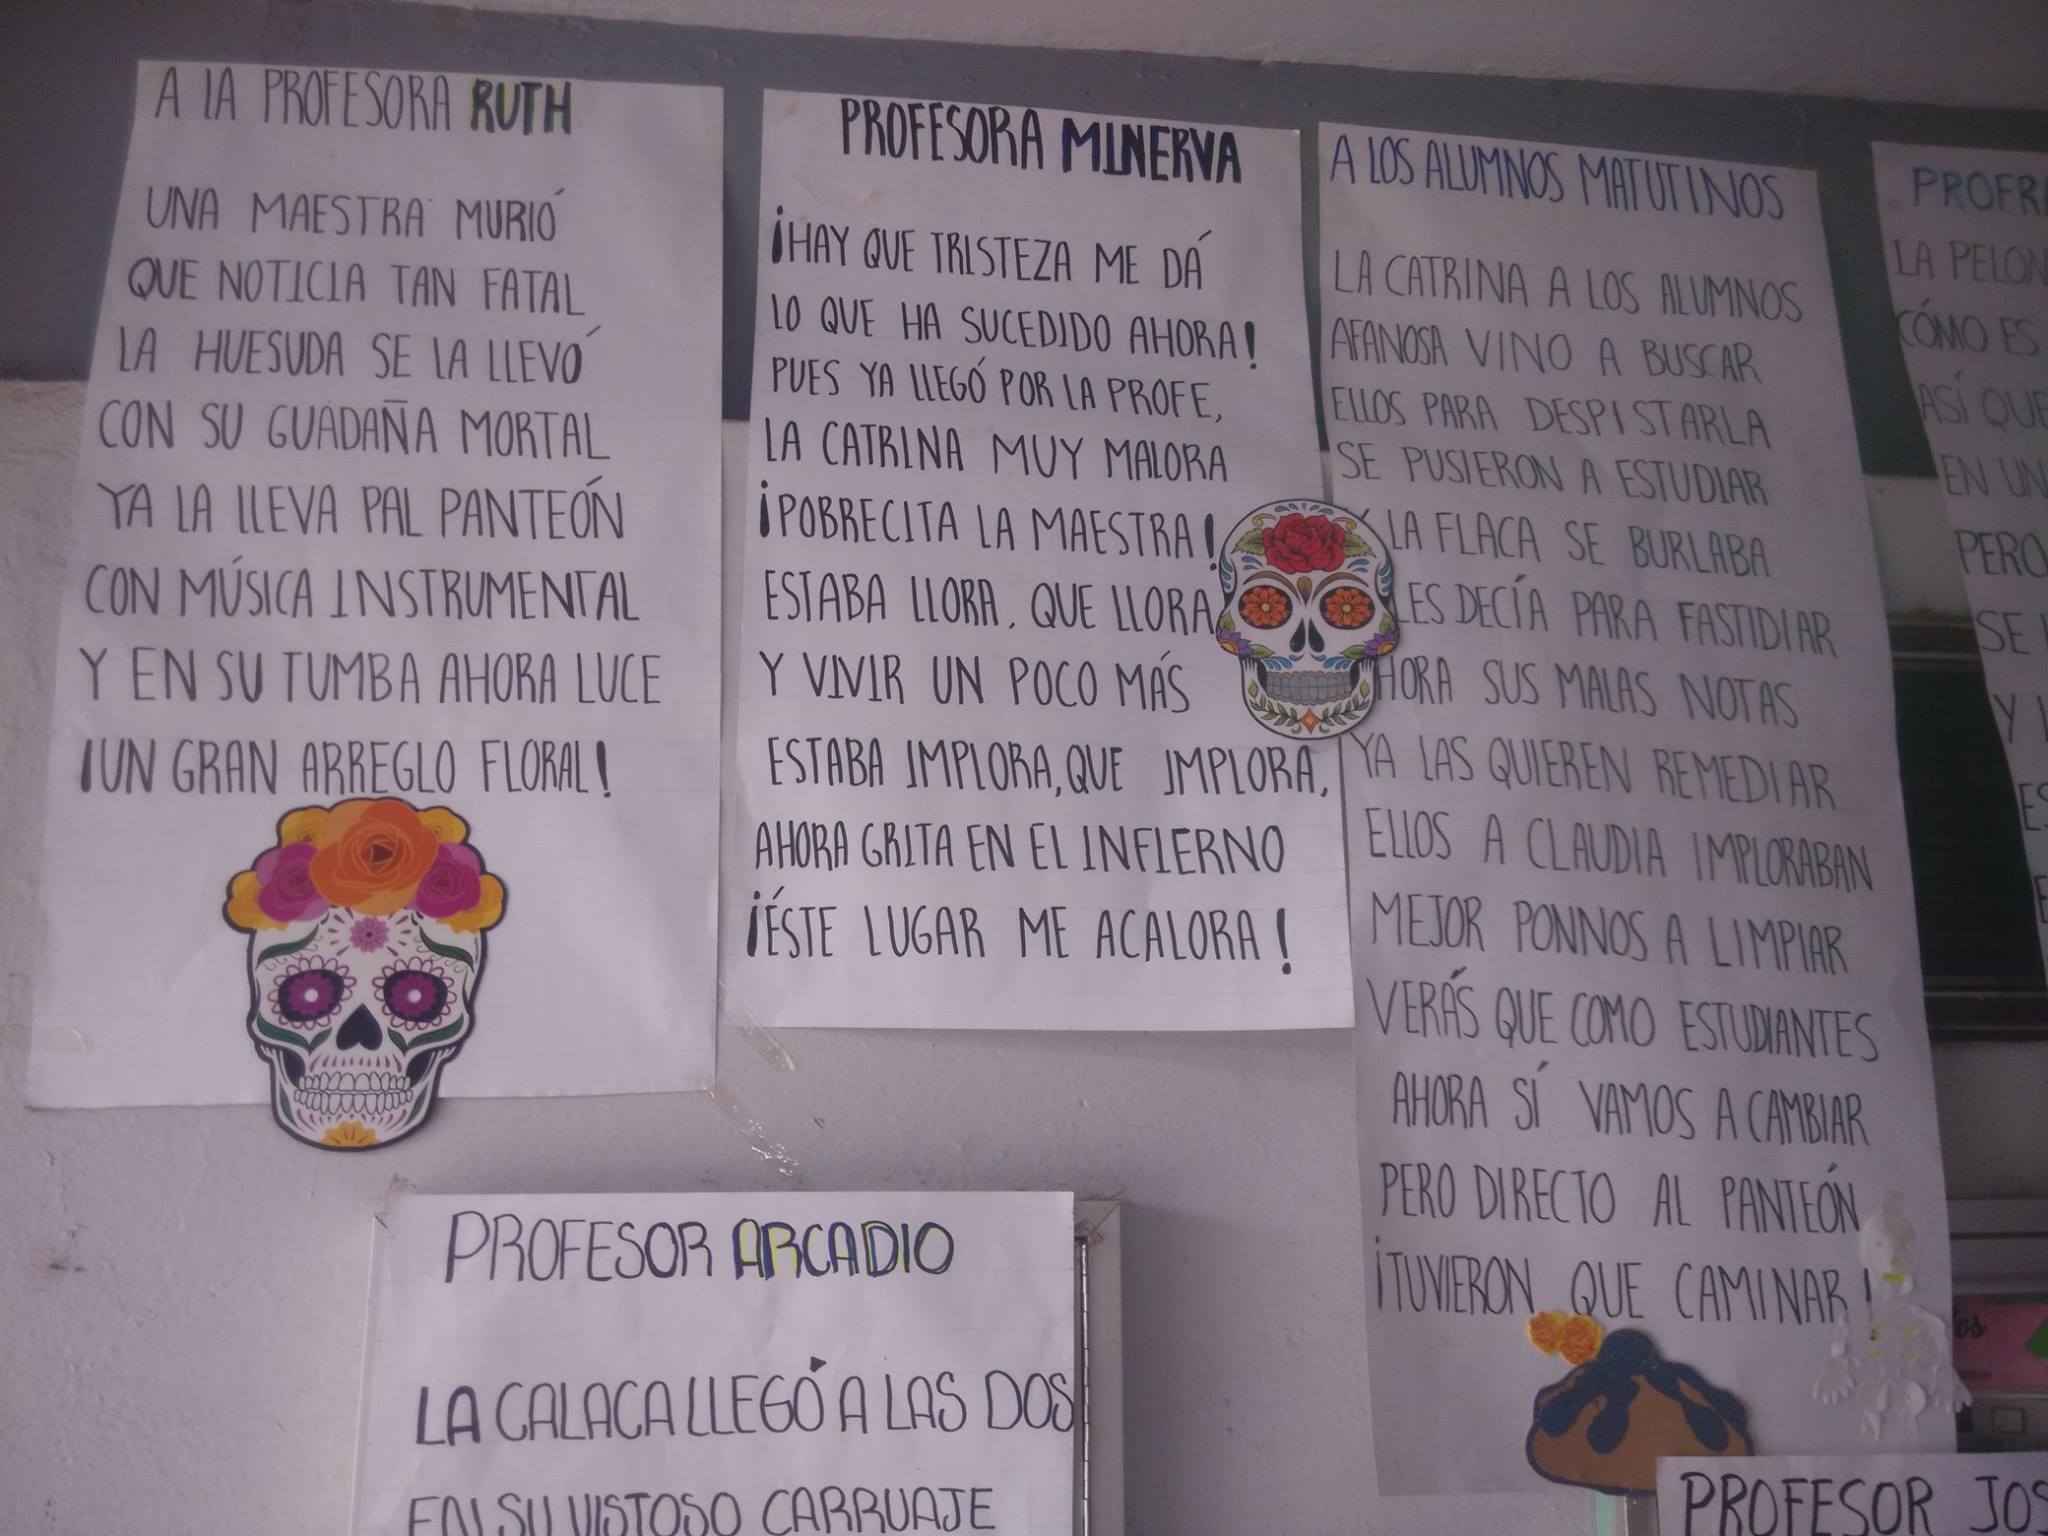 A LA PROFESORA RUTH
UNA MAESTRA MURIÓ
QUE NOTICIA TAN FATAL
LA HUESUDA SE LA LLEVÓ
CON SU GUADAÑA MORTAL
YA LA LLEVA PAL PANTEÓN
CON MÚSICA INSTRUMENTAL
Y EN SU TUMBA AHORA LUCE
¡UN GRAN ARREGLO FLORAL!
PROFESORA MINERVA
¡HAY QUE TRISTEZA ME DÁ
LO QUE HA SUCEDIDO AHORA!
PUES YA LLEGÓ POR LA PROFE,
LA CATRINA MUY MALORA
¡POBRECITA LA MAESTRA!
ESTABA LLORA, QUE LLORA
Y VIVIR UN POCO MÁS
ESTABA IMPLORA, QUE IMPLORA,
AHORA GRITA EN EL INFIERNO
¡ÉSTE LUGAR ME ACALORA!
A LOS ALUMNOS MATUTINOS
LA CATRINA A LOS ALUMNOS
AFANOSA VINO A BUSCAR
ELLOS PARA DESPISTARLA
SE PUSIERON A ESTUDIAR
LA FLACA SE BURLABA
LES DECÍA PARA FASTIDIAR
HORA SUS MALAS NOTAS
YA LAS QUIEREN REMEDIAR
ELLOS A CLAUDIA IMPLORABAN
MEJOR PONNOS A LIMPIAR
VERÁS QUE COMO ESTUDIANTES
AHORA SÍ VAMOS A CAMBIAR
PERO DIRECTO AL PANTEÓN
¡TUVIERON QUE CAMINAR!
PROFR
LA PELON
CÓMO ES
ASÍ QUE
EN UN
PERO
SE
Y
ES
PROFESOR ARCADIO
LA CALACA LLEGÓ A LAS DOS
EN SU VISTOSO CARRUAJE
PROFESOR JOS